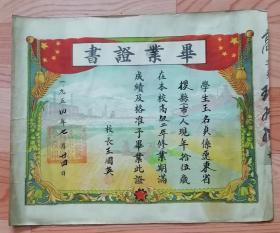 畢業證書
學生王名爽係遼東省
縣(市)人現年拾伍歲
在本校高級二年修業期滿
成績及格准予畢業此證
校長王國英
一九五四年七月廿四日